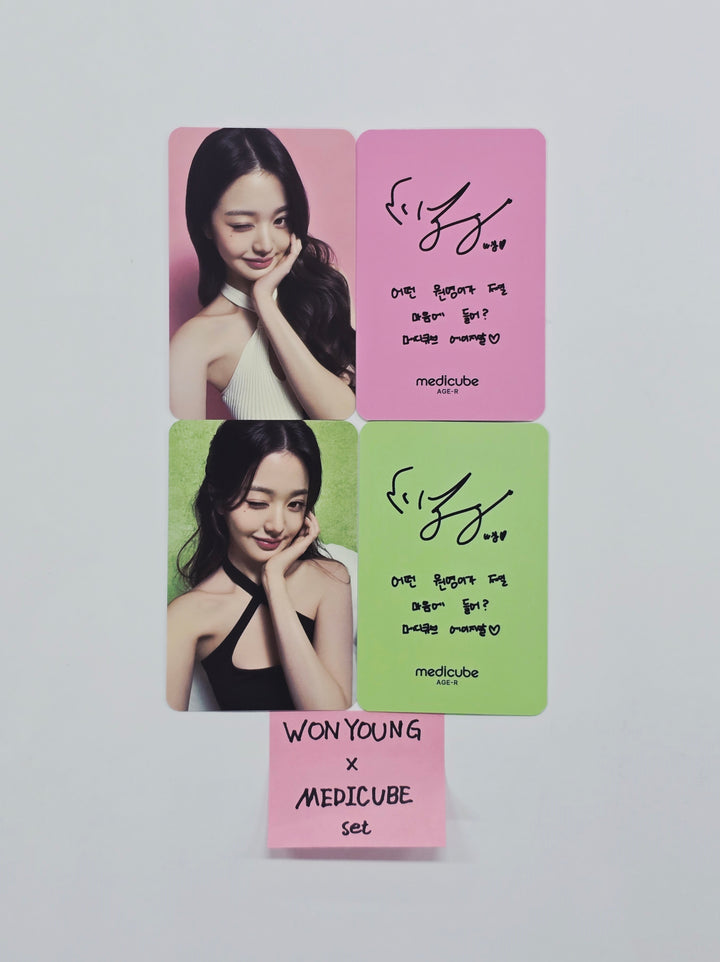 어떤 원영이가 제일
마음에 들어?
메디큐브 에이지알♡
medicube
AGE-R
어떤 원영이가 제일
마음에 들어?
메디큐브 에이지알♡
medicube
AGE-R
WONYOUNG
x
MEDICUBE
set